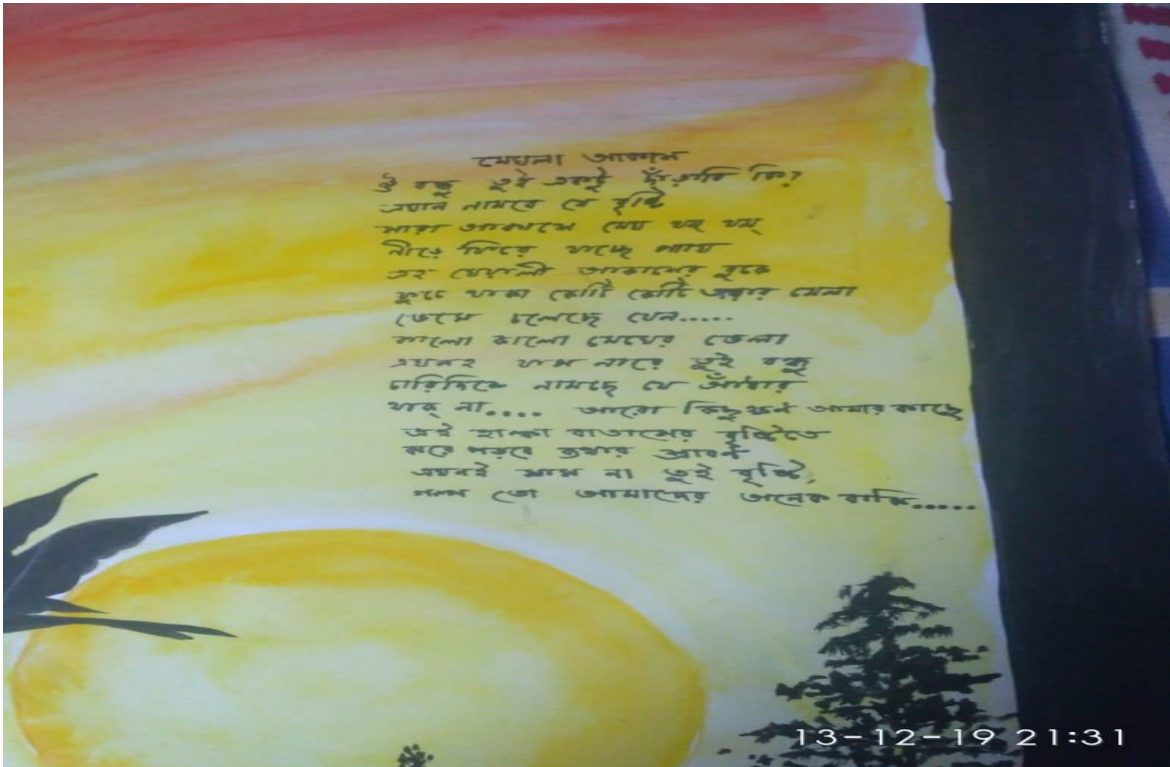 মেঘলা আকাশ
ঐ বন্ধু তুই একটু দাঁড়াবি কি?
এখনি নামবে যে বৃষ্টি
সারা আকাশে মেঘ থই থম্
নীড়ে ফিরে যাচ্ছে
এই মেঘলী আকাশের বুকে
ফুটে থাকা কোটি কোটি তারার মেলা
ভেসে চলেছে যেন.....
কালো কালো মেঘের ভেলা
এখনই যাস নারে তুই বন্ধু
চারিদিকে নামছে যে আঁধার
থাক্ না.... আরো কিছুক্ষণ আমার কাছে
এই হাল্কা বাতাসের বৃষ্টিতে
ঝরে পরবে কথার শ্রাবণ
এখনই যাস না তুই বৃষ্টি,
গল্প তো আমাদের অনেক বাকি.....
13-12-19 21:31